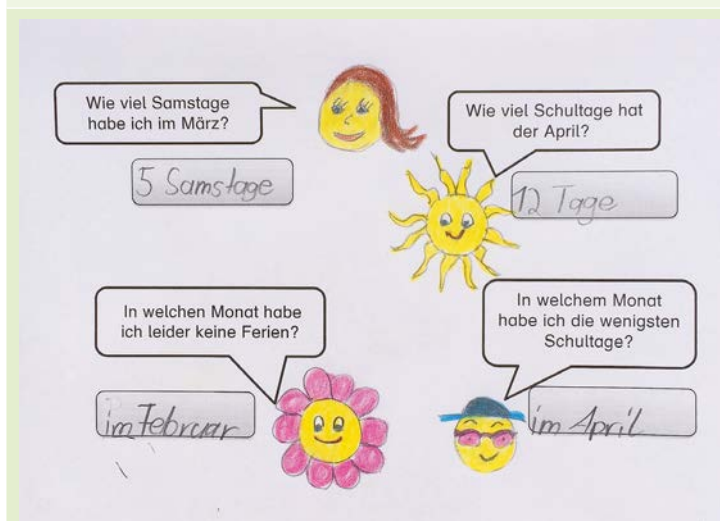 Wie viel Samstage
habe ich im März?
5 Samstage
Wie viel Schultage hat
der April?
12 Tage
In welchen Monat habe
ich leider keine Ferien?
im Februar
In welchem Monat
habe ich die wenigsten
Schultage?
im April